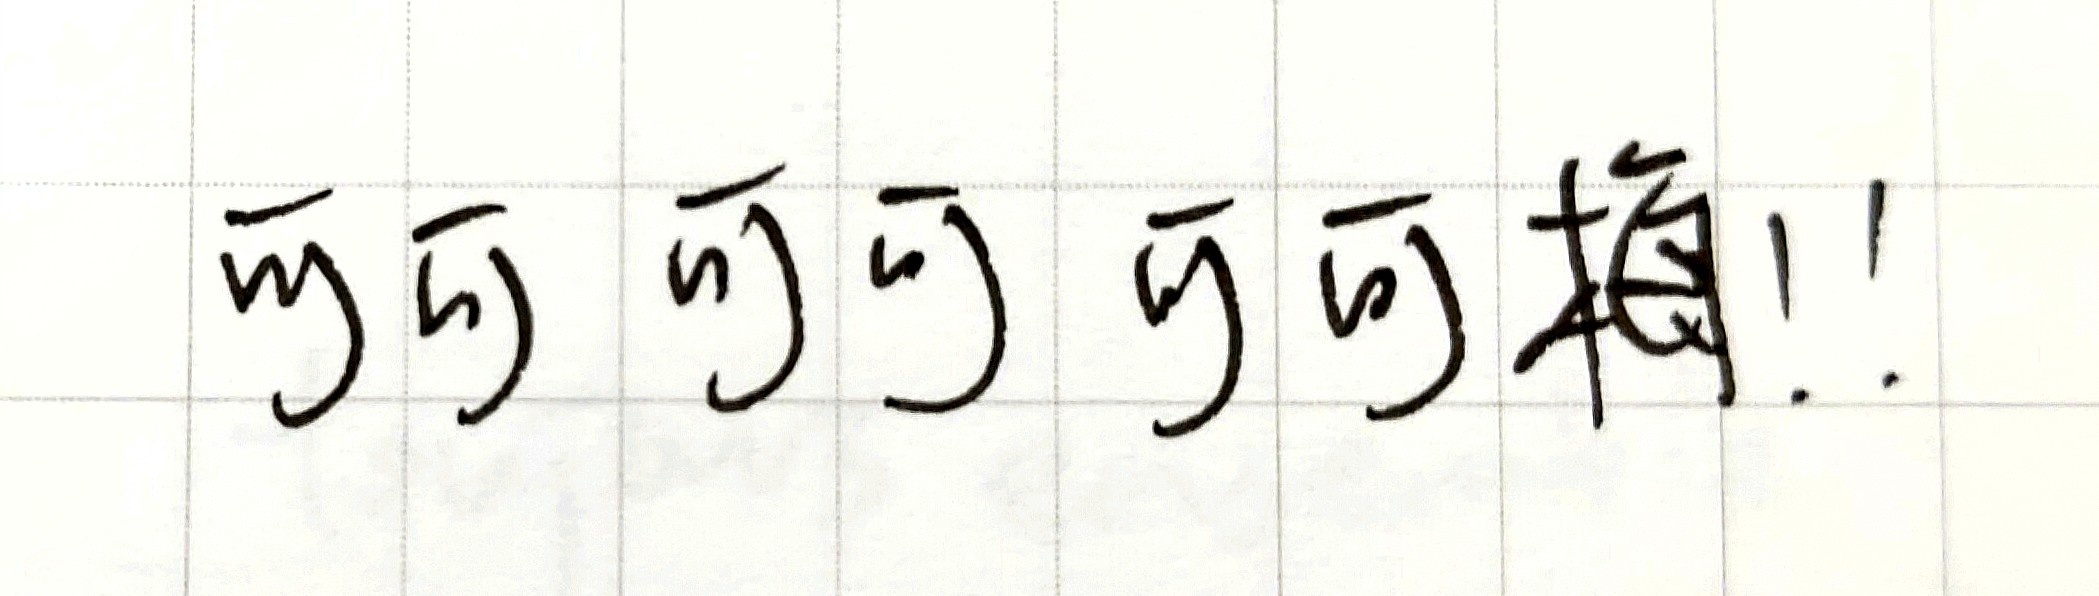 可可可可可可梅!!